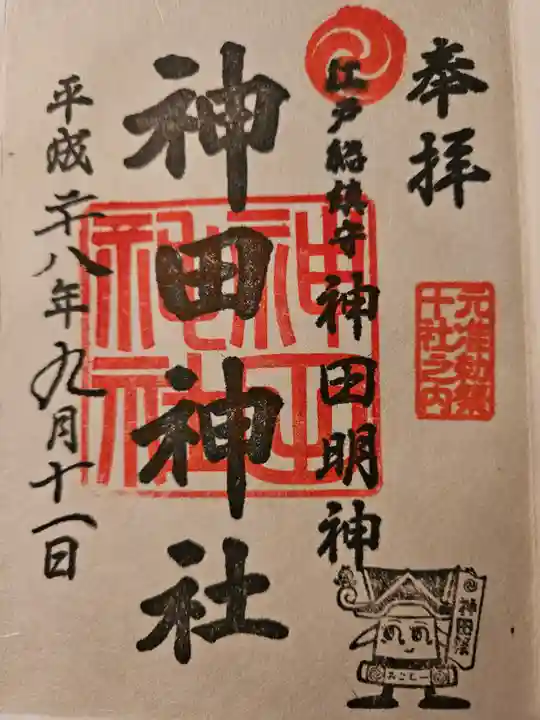 奉拝
元准勅祭
十社之内
江戸総鎮守 神田明神
神田神社
神田神社
平成二十八年九月十一日
みこしー